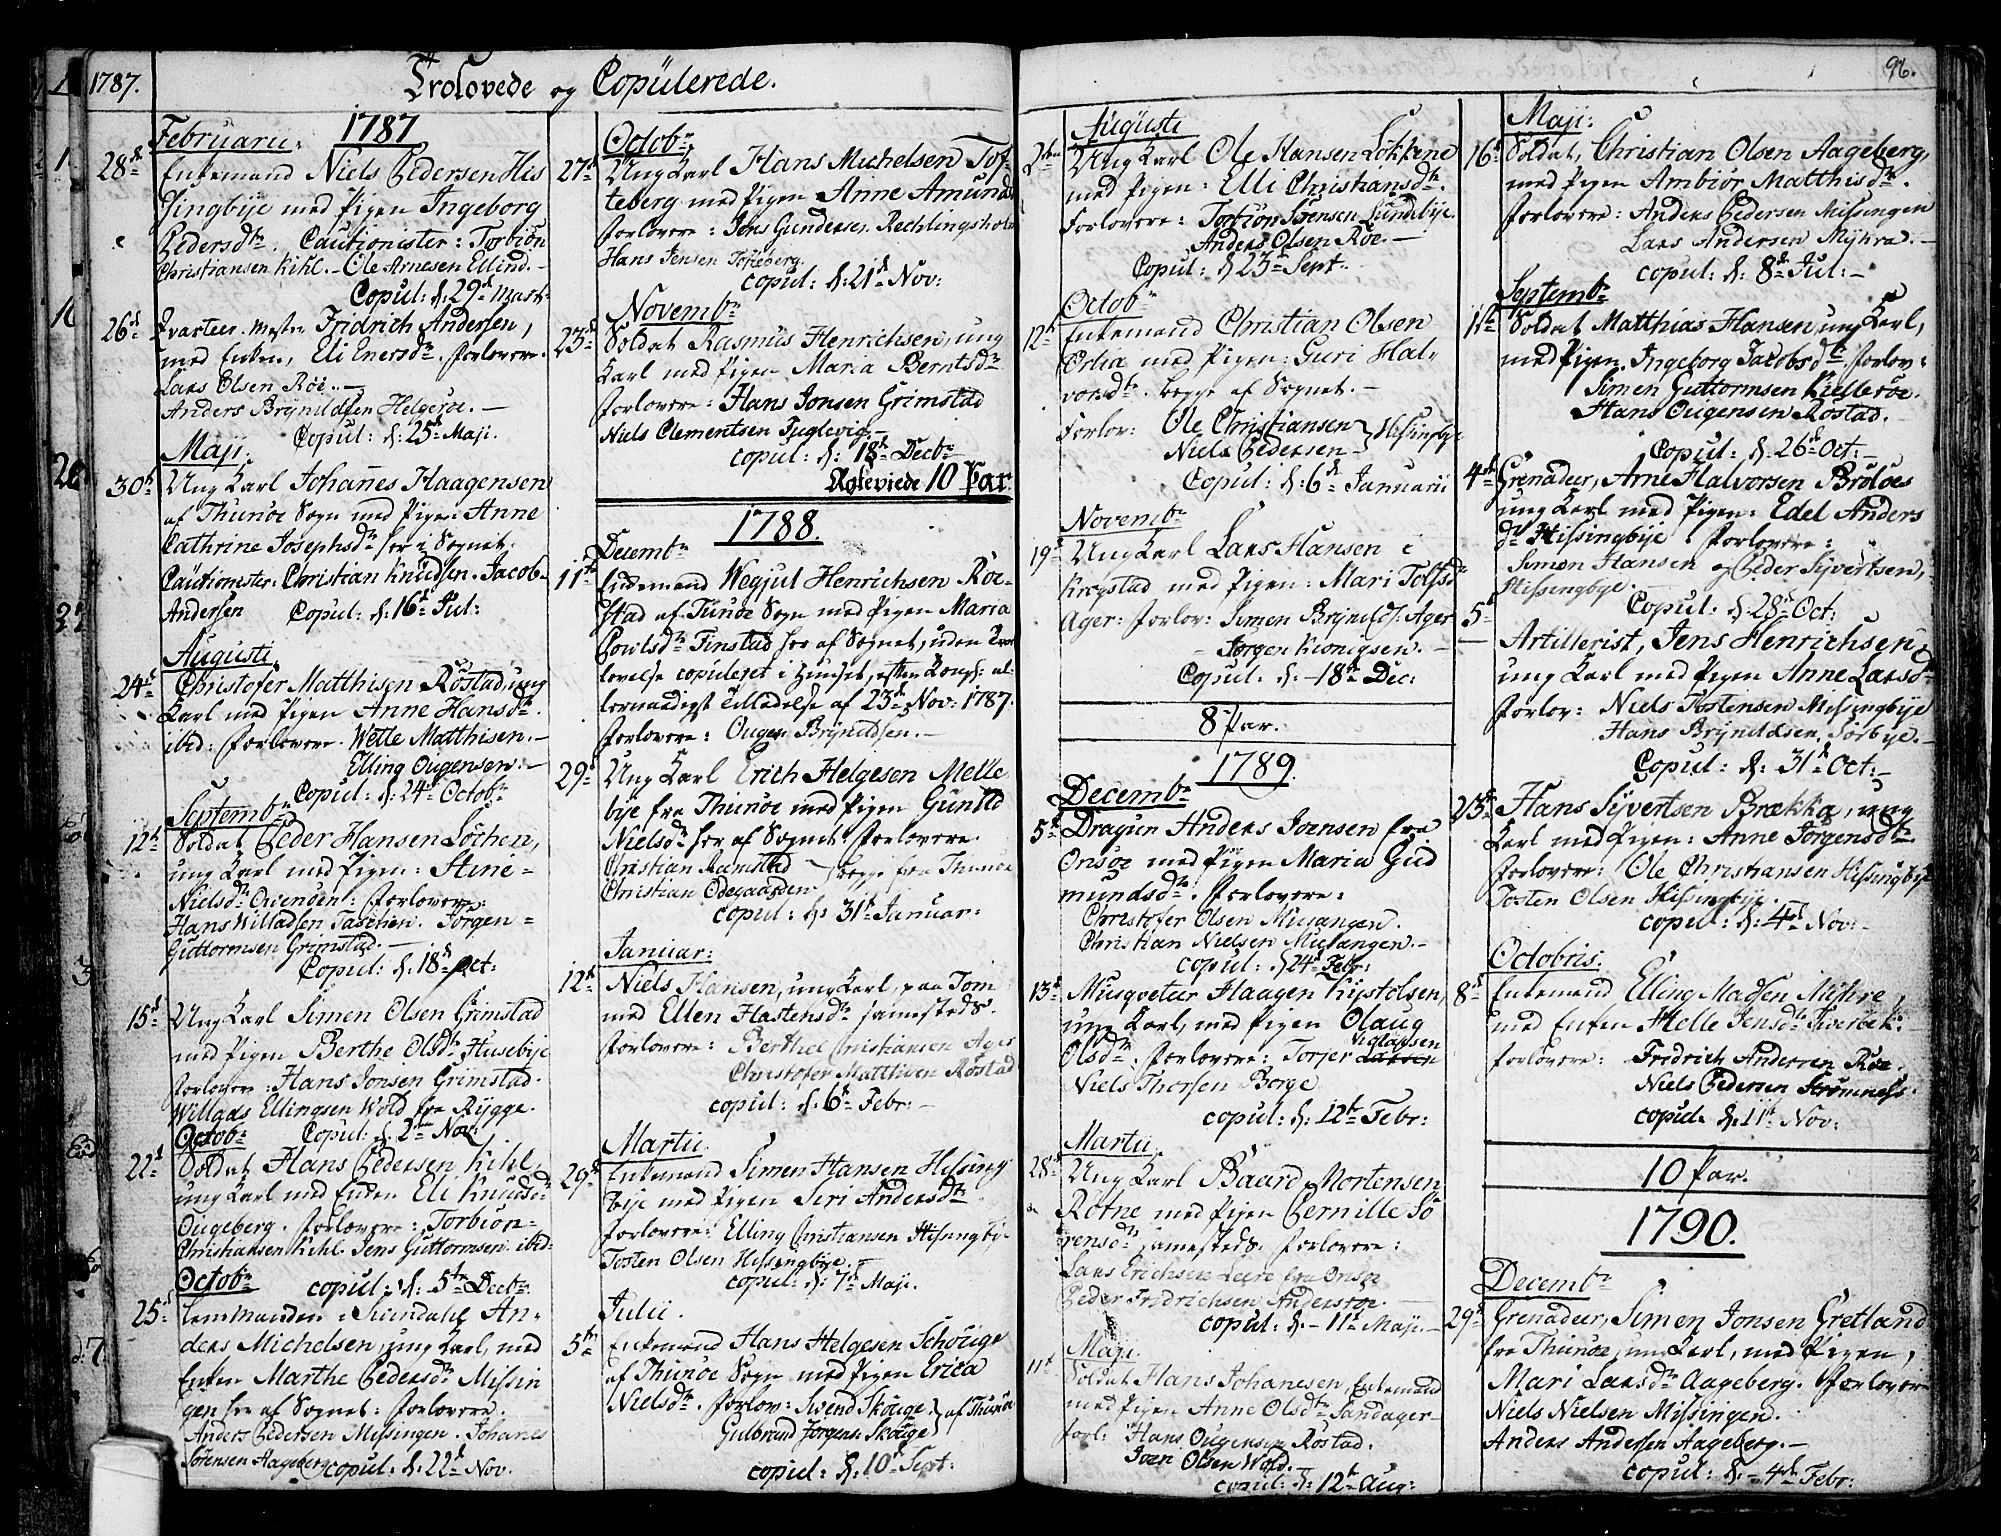 1787.
Trolovede og Copülerede.
Februarii. 1787
28de Enkemand Niels Pedersen His
singbÿe med Pigen Ingeborg
Pedersdtr. Cautionister: Torbiön
Christiansen Kihl. - Ole Arnesen Ellind. -
Copul: d: 29de Mart:
26de Qvarteer-mester Fridrich Andersen,
med Enken, Eli Enersdtr. forlovere.
Lars Olsen Röe. -
Anders Brÿnildsen Helgeroe. -
Copul: d: 25de Maji.
Maji.
30te Ung Karl Johañes Haagensen
af Thunöe Sogn med Pigen Anne
Cathrine Josephsdtr her i Sognet.
Cautionister: Christian Knudsen. Jacob
Andersen Copul: d: 16de Jul:
Augusti
24de Christofer Matthisen Röstad, ung
Karl med Pigen Anne Hansdtr.
ibid: forlovere. Wette Matthisen. -
Elling Ougensen. -
Copul: d: 24de Octobr
Septembr
12te Soldat Peder Hansen Löchen,
ung Karl med Pigen: Stine =
Nielsdtr Ovenöen: forlovere:
Hans Willadsen Taschen. Jörgen =
Guttormsen Grimstad. -
Copul: d: 18de Oct:
15de Ung Karl Simen Olsen Grimstad
med Pigen Berthe Olsdtr Husebÿe
forlovere: Hans Jonsen Grimstad.
Willads Ellingsen Wold fra Rÿgge.
Octobr Copul: d. 2den Nov:
22de Soldat Hans Pedersen Kihl
ung Karl med Enken Eli Knudsdtr
Ougeberg. forlovere: Torbiön =
Christiansen Kihl. Jens Guttormsen ibid:
Octobr copul: d: 5te Decbr:
25de Lensmanden i Skiendahl An-
ders Michelsen, ung Karl, med
Enken Marthe Pedersdtr Missin
gen her af Sognet: forlovere.
Anders Pedersen Missingen. Johanes
Sörensen Aageberg copul: d: 22de Nov.
Octobr
27de Ung Karl Hans Michelsen Tof-
teberg med Pigen Anne Amunds
forlovere: Jens Gundersen Rechlingsholm
Hans Jensen Tofteberg.
copul: d: 21de Nov:
Novembr
23de Soldat Rasmus Henrichsen, ung
Karl med Pigen Maria Berntsdtr
forlovere: Hans Jonsen Grimstad
Niels Clementsen Fuglevig. -
copul: d: 18de Decbr
Udleviede 10 Par.
1788.
Decembr
11te Enkemand Wegjul Henrichsen Roe-
stad af Tunöe Sogn med Pigen Maria
Povilsdtr Finstad her af Sognet, uden Troe
lovelse copuleret i Huuset, efter Kongl: al-
lernaadigst Tilladelse af 23de Nov: 1787.
forlovere: Ougen Brÿnildsen. -
29de Ung Karl Erich Helgesen Melle
bÿe fra Thunöe med Pigen Gunild
Nielsdtr her af Sognet. forlovere.
Christian Ramstad
Christian Odegaarden } begge fra Thunöe
copul: d: 31te Januar:
Januar:
12te Niels Hansen, ung Karl, paa Tom
med Ellen Hastensdtr samesteds.
forlovere: Berthel Christiansen Ager
Christofer Matthisen Röstad
copul: d. 6te Febr: -
Martii.
29de Enkemand Simen Hansen Hissing
bÿe med Pigen Siri Andersdtr.
forlovere: Elling Christiansen Hissingbÿe
Tosten Olsen Hissingbÿe. -
copul: d: 7de Maji.
Julii.
5te Enkemand Hans Helgesen Schöuge
af Thunöe Sogn med Pigen Erica
Nielsdtr. forlov: Svend Skouge
Gulbrand Jörgens: Skouge } af Thunöe
copul: d: 10de Sept:
96.
Augusti
2den Ung Karl Ole Hansen Lökkene
med Pigen: Elli Christiansdtr.
Forlovere: Torbiön Sörensen Lundebÿe.
Anders Olsen Röe. -
Copul: d 23de Sept:
Octobr
12te Enkemand Christian Olsen
Ödia med Pigen: Guri Hal-
vorsdtr. begge af Sognet. -
Forlov: Ole Christiansen
Niels Pedersen } Hissingbÿe
Copul: d: 6te Januarii
Novembr
19de Ung Karl Lars Hansen i
Krogstad med Pigen: Mari Tolfsdtr
Ager: forlov: Simen Brÿnilds: Ager
- Jörgen Kionigsen. -
Copul: d. - 18de Dec:
8 Par.
1789.
Decembr
5te Dragun Anders Joensen fra
Onsöe med Pigen Maria Gud
mundsdtr. forlovere:
Christofer Olsen Missingen.
Christian Nielsen Missingen. -
copul: d 24de Febr:
13de Musqveteer Haagen Kystolsen,
ung Karl, med Pigen Olaug
Olsdtr. forlovere: Torjer Vigtarsen
Niels Thorsen Borge
copul: d: 12te Febr:
Martii
28de Ung Karl Baard Mortensen
Rötne med Pigen Pernille Sö
rensdtr samesteds. forlovere:
Lars Erichsen Leere fra Onsöe
Peder Fridrichsen Andersröe. -
copul: d. - 11te Maji. -
Maji.
11te Soldat Hans Johanesen, Enkemand
med Pigen Anne Olsdtr Sandager -
forl: Hans Ougensen Röstad.
Joen Olsen Wold.
copul: d: 12te Aug:
Maji:
16de Soldat, Christian Olsen Aageberg,
med Pigen Ambiör Matthisdtr.
forlovere: Anders Pedersen Missingen
Lars Andersen Mÿhra. -
copul: d: 8de Jul: -
Septembr
11te Soldat Matthias Hansen, ung Karl,
med Pigen Ingeborg Jacobsdtr. forlov:
Simen Guttormsen Kielleröe.
Hans Ougensen Röstad.
Copul: d: 26de Oct: -
4de Grenadeer, Arne Halvorsen Bröloes
ung Karl med Pigen: Edel Anders
dtr Hissingbÿe. forlovere:
Simen Hansen og Peder Sÿvertsen,
Hissingbÿe.
Copul: d: 28de Oct:
5te Artillerist, Jens Henrichsen,
ung Karl med Pigen Anne Larsdtr
forlov: Niels Tostensen Missingbÿe
Hans Brÿnildsen, Sörbÿe. -
Copul: d: 31te Oct: -
23de Hans Sÿvertsen Brække, ung
Karl med Pigen: Anne Jörgensdtr
forlovere: Ole Christiansen Hissingbÿe
Tosten Olsen Hissingbÿe.
copul: d: 4de Nov: -
Octobris.
8de Enkemand Elling Madsen Mÿhre,
med Enken Helle Jensdtr Tverbek.
forlovere: Fredrich Andersen Röe.
Niels Pedersen Strömness.
copul: d: 11te Nov:
10 Par.
1790.
Decembr
29de Grenadeer, Simen Jonsen Gretland
fra Thunöe, ung Karl, med Pigen,
Mari Larsdtr Aageberg. Forlovere
Niels Nielsen Missingen.
Anders Andersen Aageberg. -
copul: d. - 4de Febr: